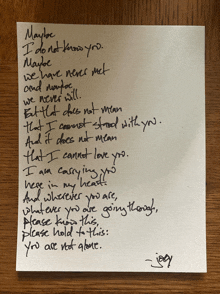 Maybe
I do not know you.
Maybe
we have never met
and maybe
we never will.
But that does not mean
that I cannot stand with you.
And it does not mean
that I cannot love you.
I am carrying you
here in my heart.
And wherever you are,
whatever you are going through,
please know this,
please hold to this:
you are not alone.
-joey